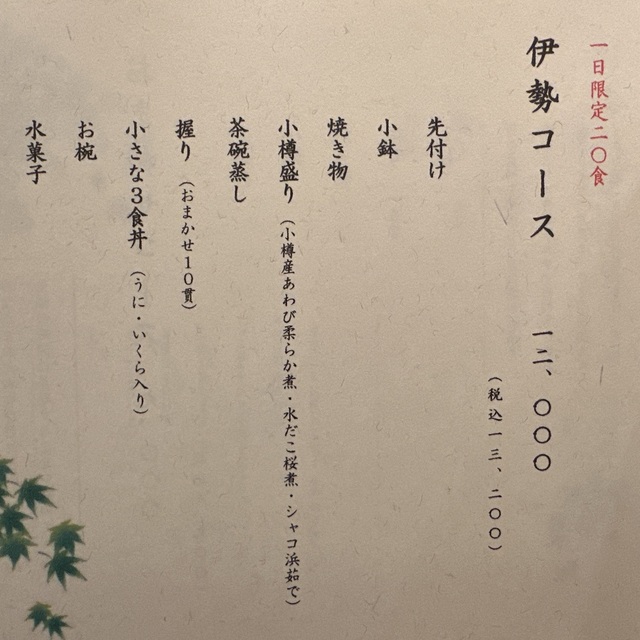 一日限定二〇食
伊勢コース 一二、〇〇〇
（税込一三、二〇〇）
先付け
小鉢
焼き物
小樽盛り（小樽産あわび柔らか煮・水だこ桜煮・シャコ浜茹で）
茶碗蒸し
握り（おまかせ１０貫）
小さな３食丼（うに・いくら入り）
お椀
水菓子